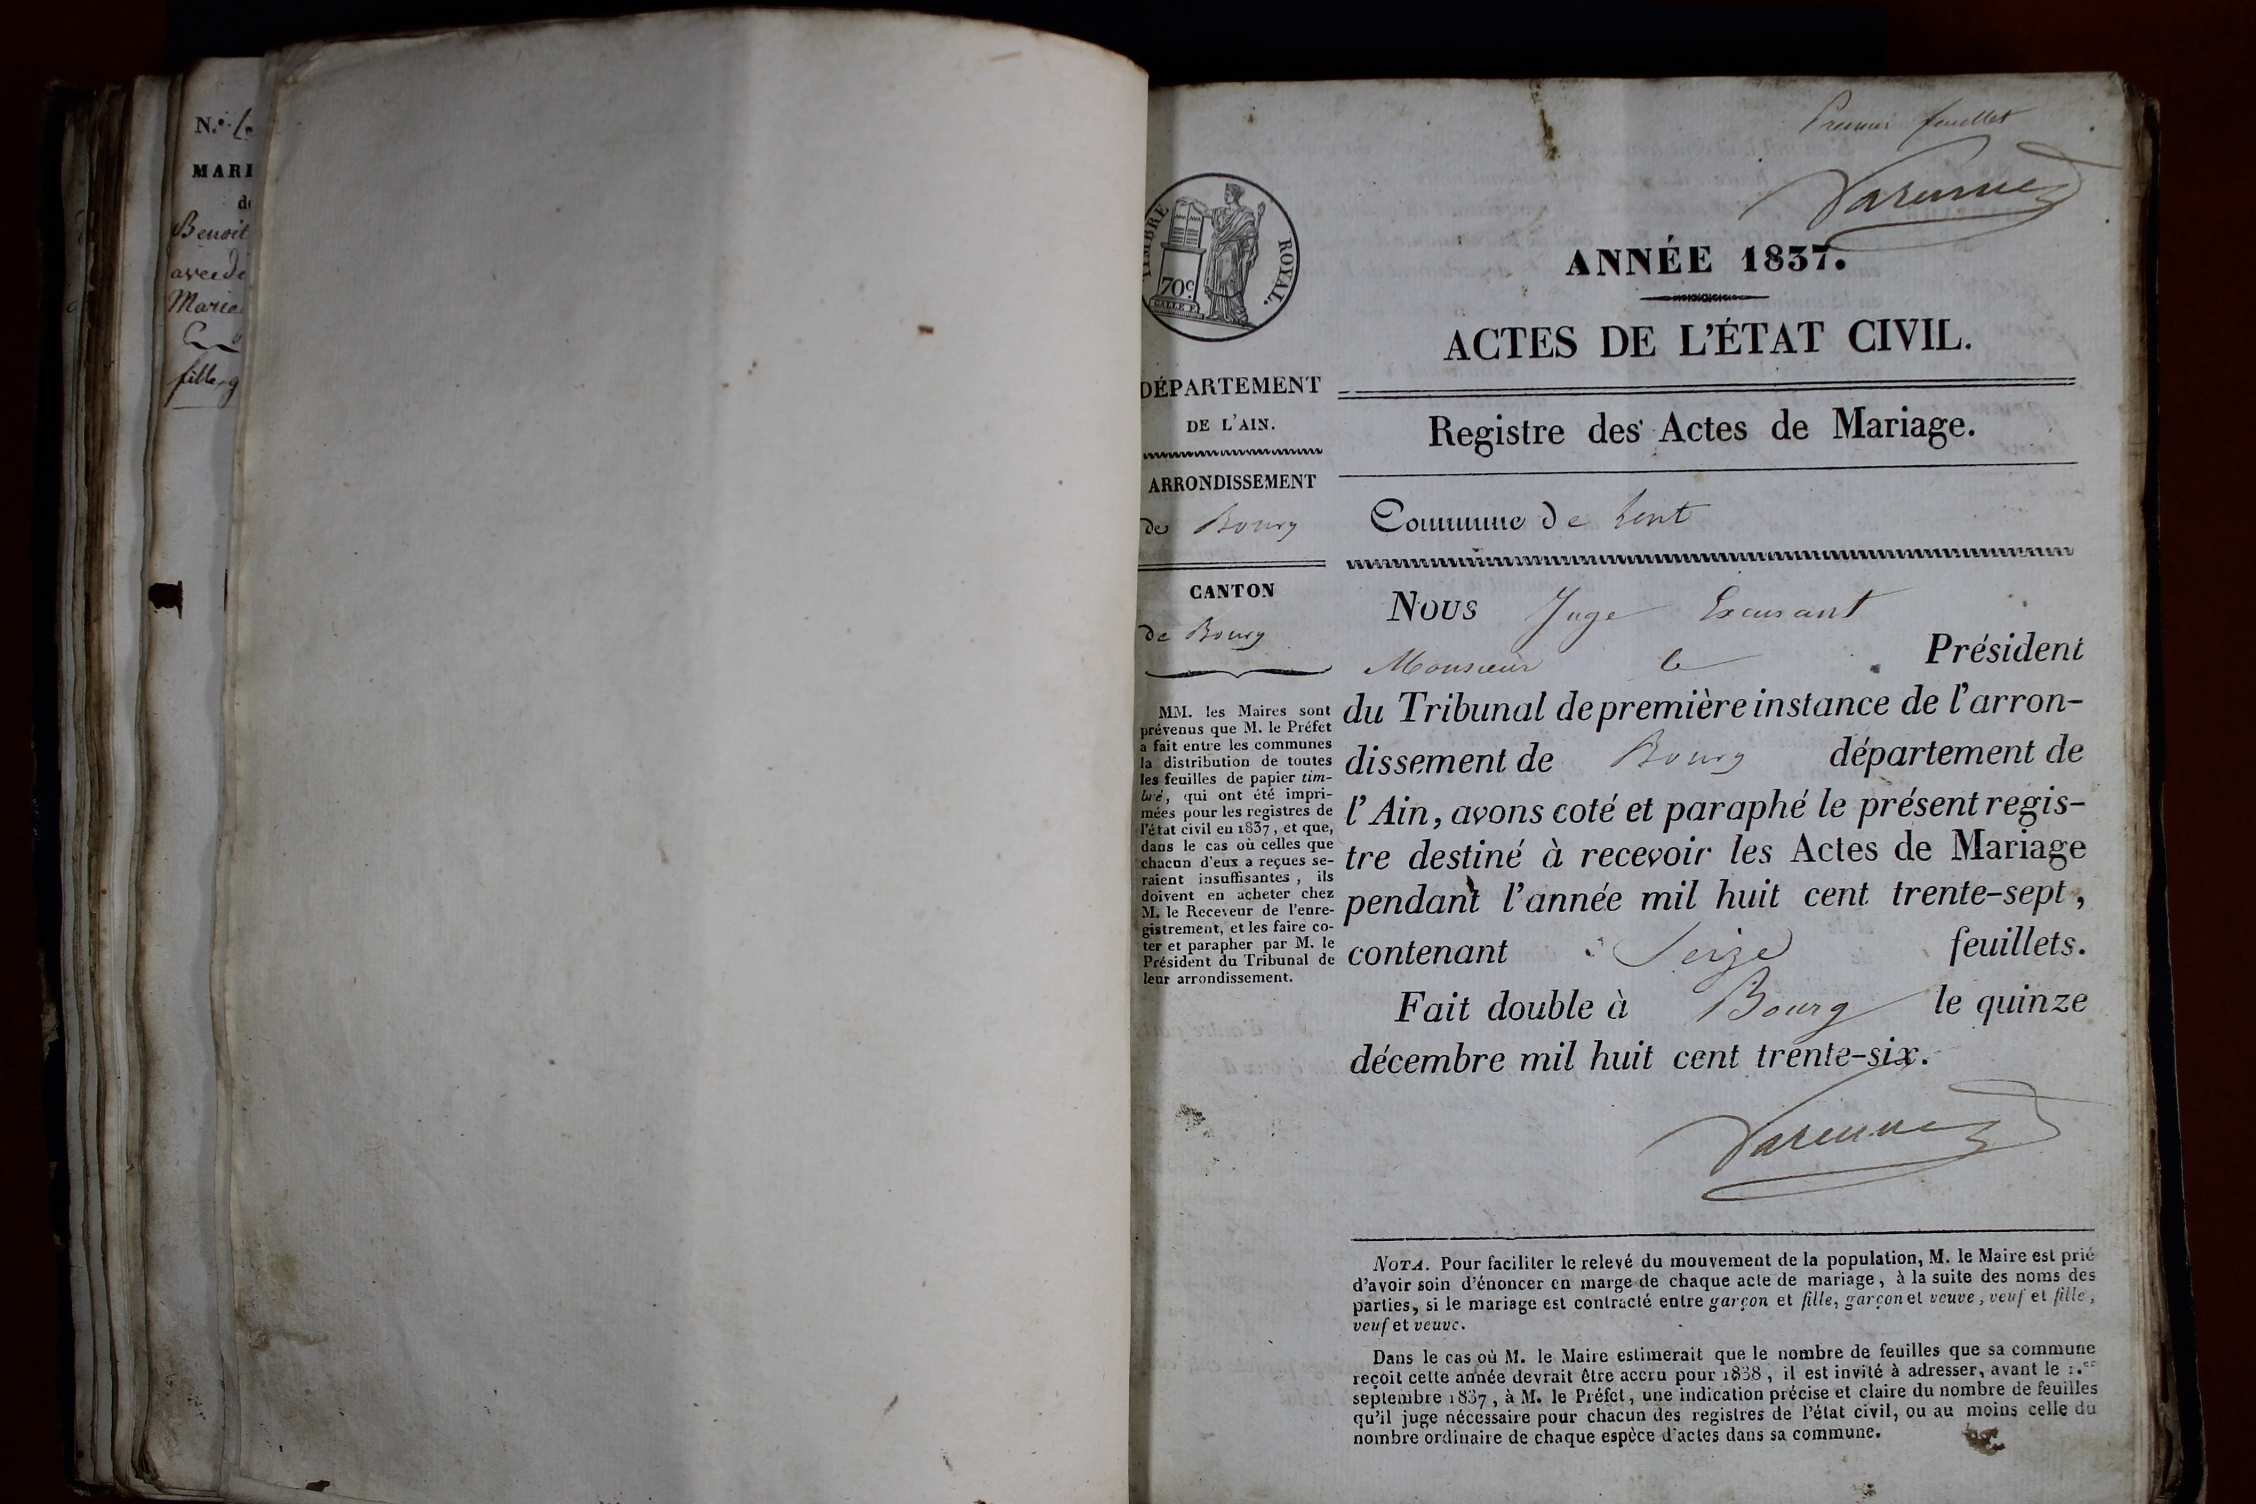 N.º
MARI
de
Benoit
avec de
Marie
fille
Premier feuillet
Varenne
TIMBRE ROYAL.
70c.
ANNÉE 1837.
ACTES DE L'ÉTAT CIVIL.
DÉPARTEMENT
DE L'AIN.
Registre des Actes de Mariage.
ARRONDISSEMENT
de Bourg
Commune de Lent
CANTON
de Bourg
MM. les Maires sont
prévenus que M. le Préfet
a fait entre les communes
la distribution de toutes
les feuilles de papier tim-
bré, qui ont été impri-
mées pour les registres de
l'état civil en 1837, et que,
dans le cas où celles que
chacun d'eux a reçues se-
raient insuffisantes, ils
doivent en acheter chez
M. le Receveur de l'enre-
gistrement, et les faire co-
ter et parapher par M. le
Président du Tribunal de
leur arrondissement.
Nous Juge Excusant
Monsieur le Président
du Tribunal de première instance de l'arron-
dissement de Bourg département de
l'Ain, avons coté et paraphé le présent regis-
tre destiné à recevoir les Actes de Mariage
pendant l'année mil huit cent trente-sept,
contenant Seize feuillets.
Fait double à Bourg le quinze
décembre mil huit cent trente-six.
Varenne
NOTA. Pour faciliter le relevé du mouvement de la population, M. le Maire est prié
d'avoir soin d'énoncer en marge de chaque acte de mariage, à la suite des noms des
parties, si le mariage est contracté entre garçon et fille, garçon et veuve, veuf et fille,
veuf et veuve.
Dans le cas où M. le Maire estimerait que le nombre de feuilles que sa commune
reçoit cette année devrait être accru pour 1838, il est invité à adresser, avant le 1.er
septembre 1837, à M. le Préfet, une indication précise et claire du nombre de feuilles
qu'il juge nécessaire pour chacun des registres de l'état civil, ou au moins celle du
nombre ordinaire de chaque espèce d'actes dans sa commune.